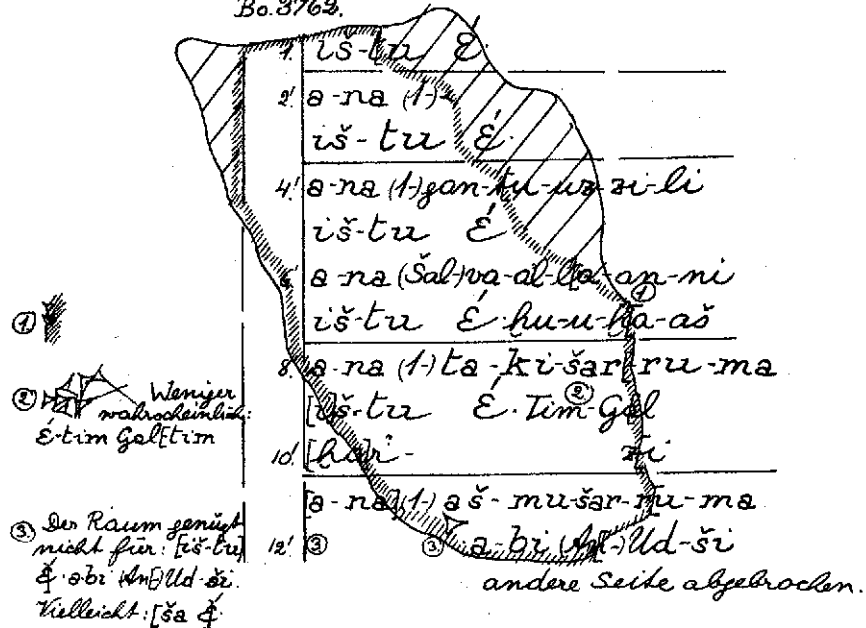 Bo. 3762.
1! iš-[tu É
2! a-na (1-)
iš-tu É
4! a-na (1-) gan-tu-uz-zi-li
iš-tu É
6! a-na (Šal-)va-al-l[a-an-ni
iš-tu É ḫu-u-ḫa-aš ①
8! a-na (1-) ta-ki-šar-ru-ma
[i]š-tu É. Tim-Gal ②
10! [ḫa]r- zi
[a-na] (1-) aš-mu-šar-ru-ma
12! ③ ③ a-bi (An[-)Ud-ši
andere Seite abgebrochen.
①
② Weniger wahrscheinlich:
É-tim Gal[tim
③ Der Raum genügt
nicht für: [iš-tu]
É a-bi (An[-)Ud-ši.
Vielleicht: [ša É